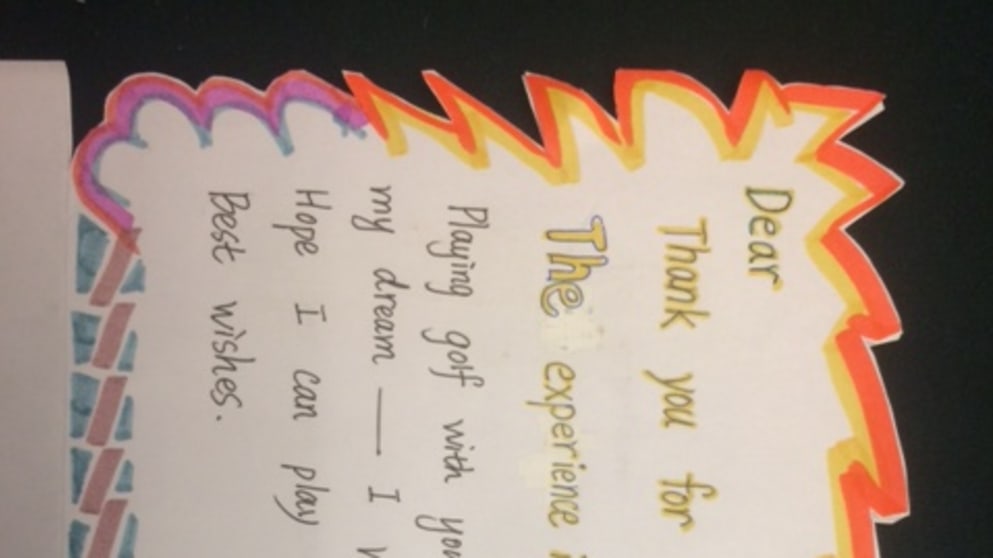 Dear
Thank you for
The experience
Playing golf with you
my dream — I
Hope I can play
Best wishes.